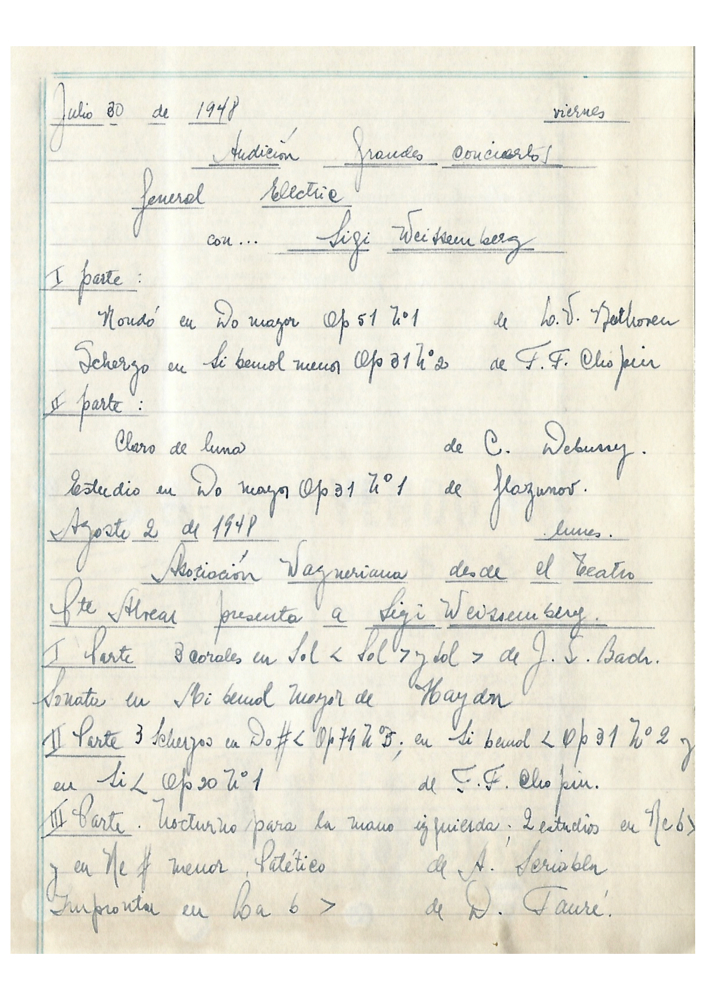 Julio 30 de 1948 viernes
Audición Grandes Conciertos
General Electric
con... Sigi Weissemberg
I parte:
Rondó en Do mayor Op 51 Nº1 de L.V. Bethoven
Scherzo en Si bemol menor Op 31 Nº2 de F.F. Chopin
II parte:
Claro de luna de C. Debussy.
Estudio en Do mayor Op 31 Nº1 de Glazunov.
Agosto 2 de 1948 lunes.
Asociación Wagneriana desde el Teatro
Pte Alvear presenta a Sigi Weissemberg.
I Parte 3 corales en Sol < Sol > y Sol > de J. S. Bach.
Sonata en Mi bemol Mayor de Haydn
II Parte 3 Scherzos en Do # < Op 79 Nº3; en Si bemol < Op 31 Nº 2 y
en Si < Op 20 Nº1 de F.F. Chopin.
III Parte. Nocturno para la mano izquierda; 2 estudios en Re b >
y en Re # menor, Patético de A. Scriabin
Impronta en La b > de D. Fauré.